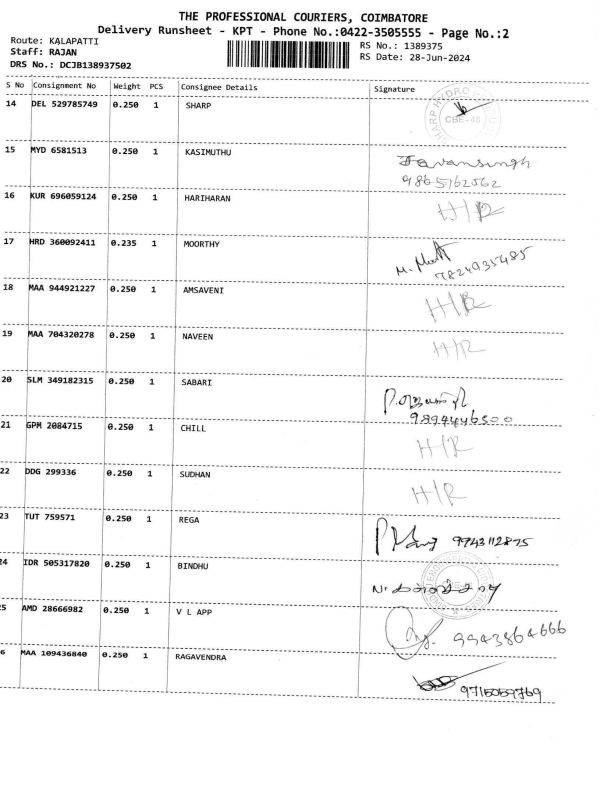 THE PROFESSIONAL COURIERS, COIMBATORE
Delivery Runsheet - KPT - Phone No.:0422-3505555 - Page No.:2
Route: KALAPATTI
Staff: RAJAN
DRS No.: DCJB138937502
RS No.: 1389375
RS Date: 28-Jun-2024
S No Consignment No Weight PCS Consignee Details Signature
14 DEL 529785749 0.250 1 SHARP
CBE-48
15 MYD 6581513 0.250 1 KASIMUTHU
9865162562
16 KUR 696059124 0.250 1 HARIHARAN H/R
17 HRD 360092411 0.235 1 MOORTHY
7824935485
18 MAA 944921227 0.250 1 AMSAVENI H/R
19 MAA 704320278 0.250 1 NAVEEN H/R
20 SLM 349182315 0.250 1 SABARI
9894446500
21 GPM 2084715 0.250 1 CHILL H/R
22 DDG 299336 0.250 1 SUDHAN H/R
23 TUT 759571 0.250 1 REGA 9943112875
24 IDR 505317820 0.250 1 BINDHU
25 AMD 28666982 0.250 1 V L APP 9943864666
26 MAA 109436840 0.250 1 RAGAVENDRA
9715059769